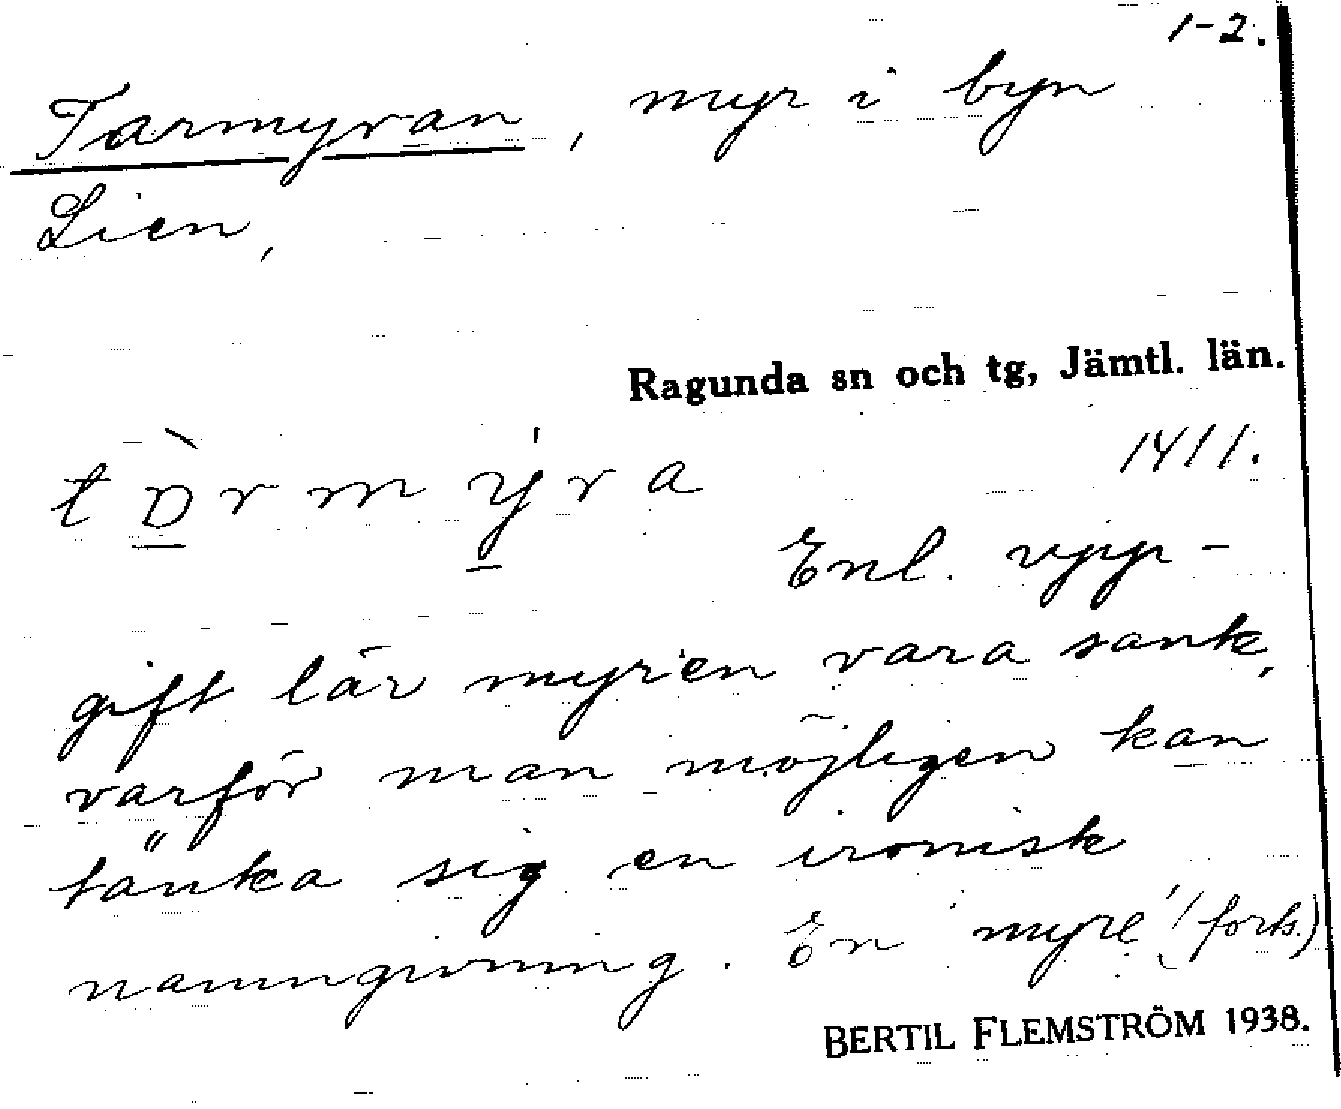 1-2.
Tarmyran, myr i byn
Lien,
Ragunda sn och tg, Jämtl. län.
1411.
Enl. upp-
gift lär myren vara sank,
varför man möjligen kan
tänka sig en ironisk
namngivning. En 'myre' (forts.)
BERTIL FLEMSTRÖM 1938.